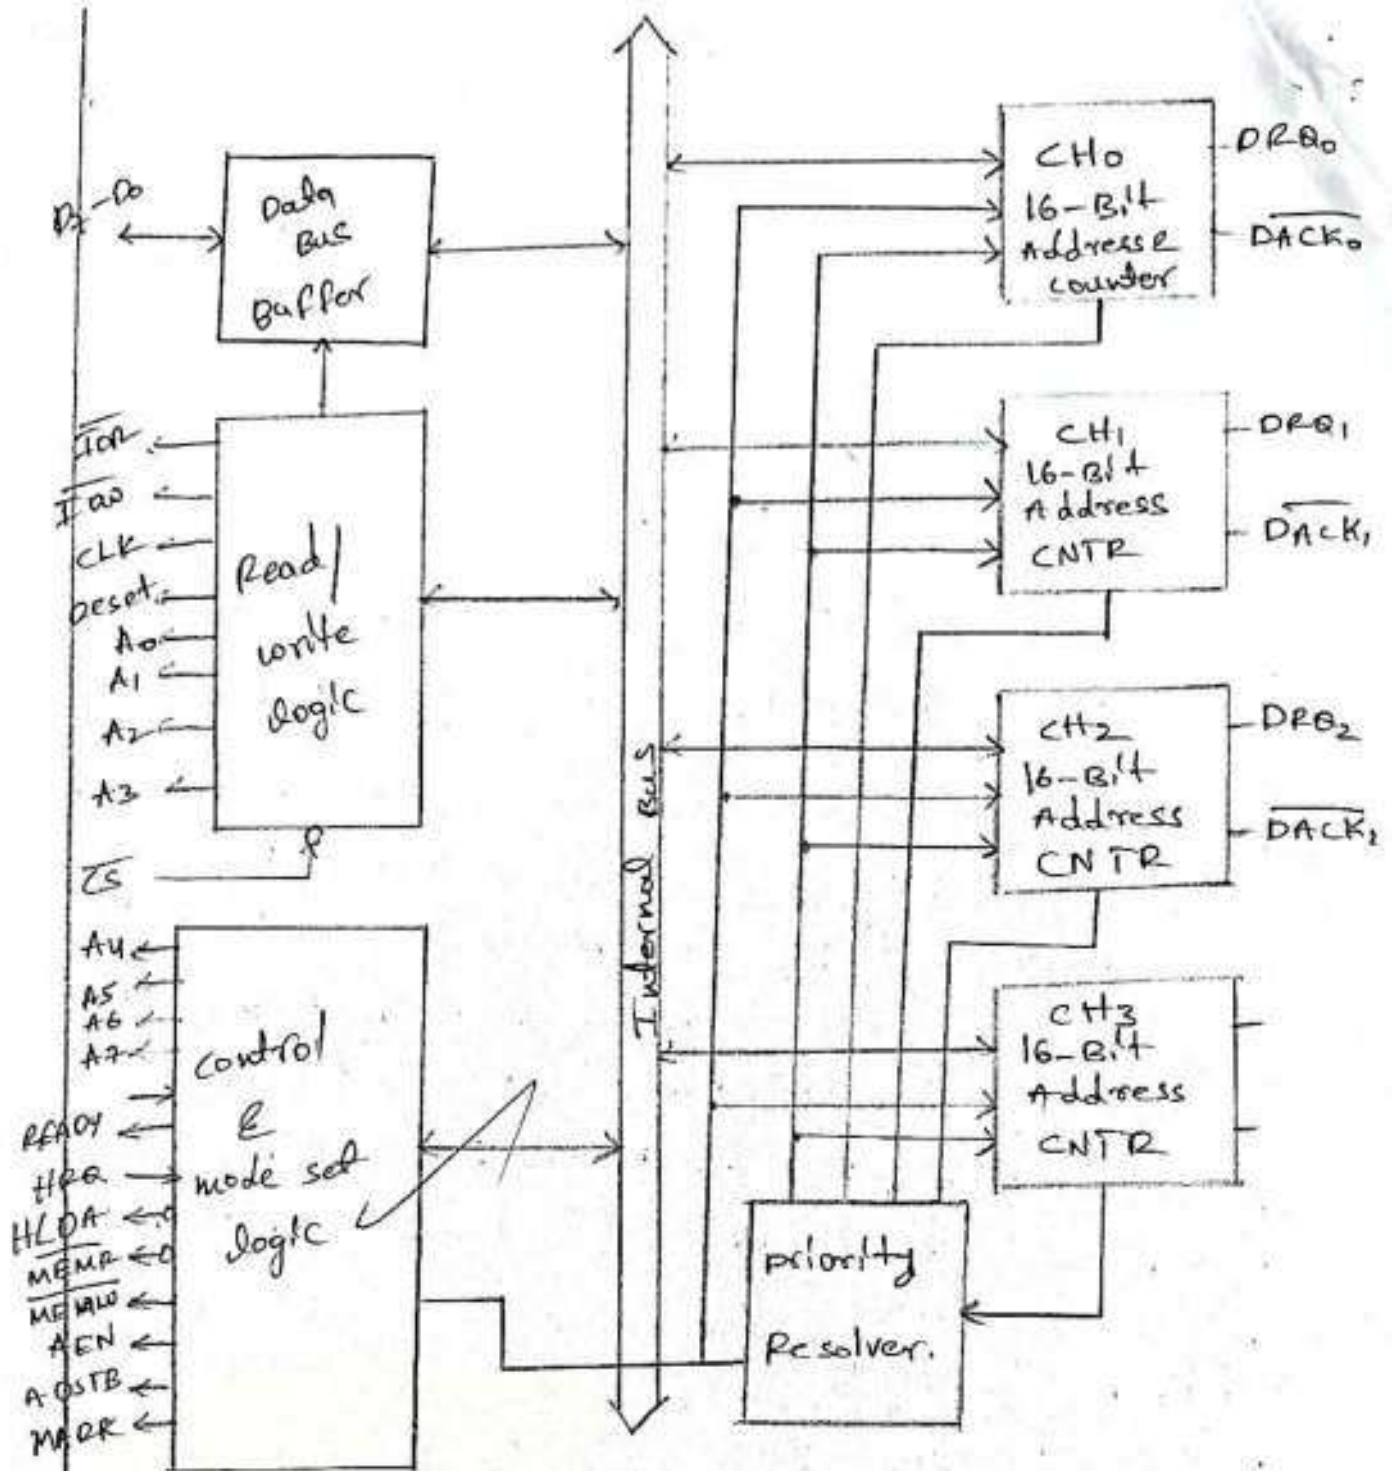 Data
Bus
Buffer
CLK
A0
A1
A2
A3
C̅S̅
Read/
write
logic
A4
A5
A6
A7
READY
HRQ
HLDA
M̅E̅M̅R̅
AEN
MARK
control
&
mode set
logic
Internal Bus
CH0
16-Bit
Address &
counter
DRQ0
D̅A̅C̅K̅0
CH1
16-Bit
Address
CNTR
DRQ1
D̅A̅C̅K̅1
CH2
16-Bit
Address
CNTR
DRQ2
D̅A̅C̅K̅2
CH3
16-Bit
Address
CNTR
priority
Resolver.